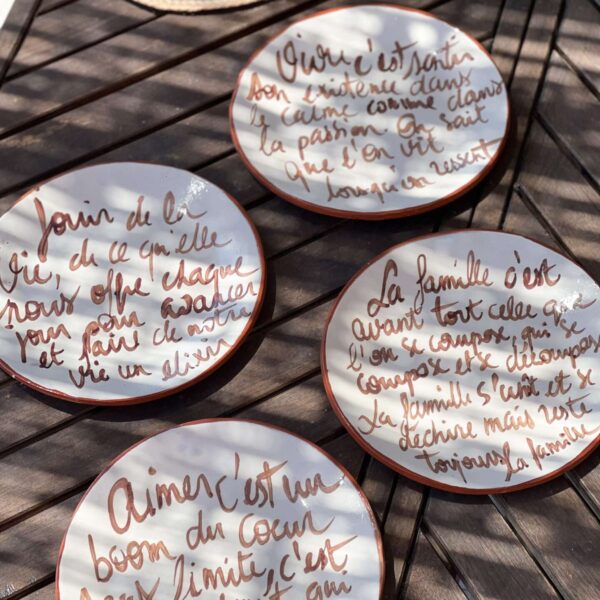 Vivre c'est sentir
son existence dans
le calme comme dans
la passion. On sait
que l'on vit
lorsqu'on ressent
Jouir de la
vie, de ce qu'elle
nous offre chaque
jour pour avancer
et faire de notre
vie un elixir
La famille c'est
avant tout celle que
l'on se compose, qui se
compose et se décompose
La famille s'unit et se
déchire mais reste
toujours la famille
Aimer c'est un
boom du coeur
sans limite, c'est
qui